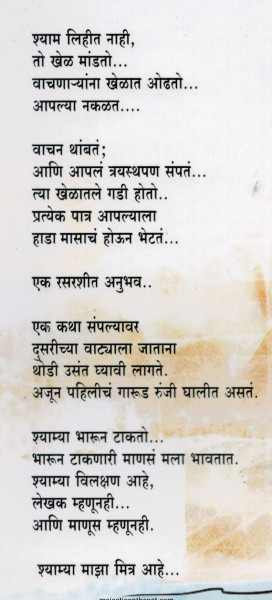 श्याम लिहीत नाही,
तो खेळ मांडतो...
वाचणाऱ्यांना खेळात ओढतो...
आपल्या नकळत....
वाचन थांबतं;
आणि आपलं त्रयस्थपण संपतं...
त्या खेळातले गडी होतो..
प्रत्येक पात्र आपल्याला
हाडा मासाचं होऊन भेटतं...
एक रसरशीत अनुभव..
एक कथा संपल्यावर
दुसरीच्या वाट्याला जाताना
थोडी उसंत घ्यावी लागते.
अजून पहिलीचं गारूड रुंजी घालीत असतं.
श्याम्या भारून टाकतो...
भारून टाकणारी माणसं मला भावतात.
श्याम्या विलक्षण आहे,
लेखक म्हणूनही...
आणि माणूस म्हणूनही.
श्याम्या माझा मित्र आहे...